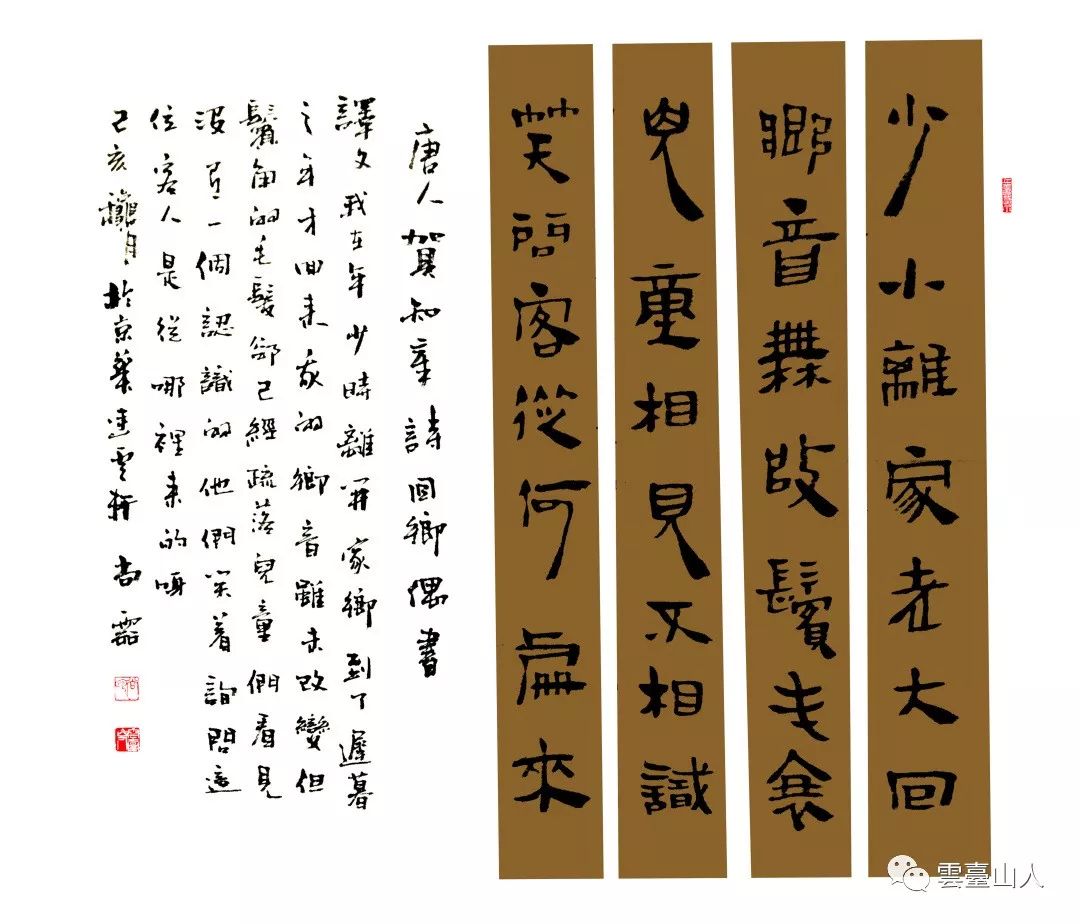 少小離家老大回
鄉音無改鬢毛衰
兒童相見不相識
笑問客從何處來
唐人賀知章詩回鄉偶書
譯文我在年少時離開家鄉到了遲暮
之年才回來我的鄉音雖未改變但
鬢角的毛髮卻已經疏落兒童們看見
沒有一個認識的他們笑着詢問這
位客人是從哪裡來的呀
己亥臘月於京華雲軒尚
雲臺山人